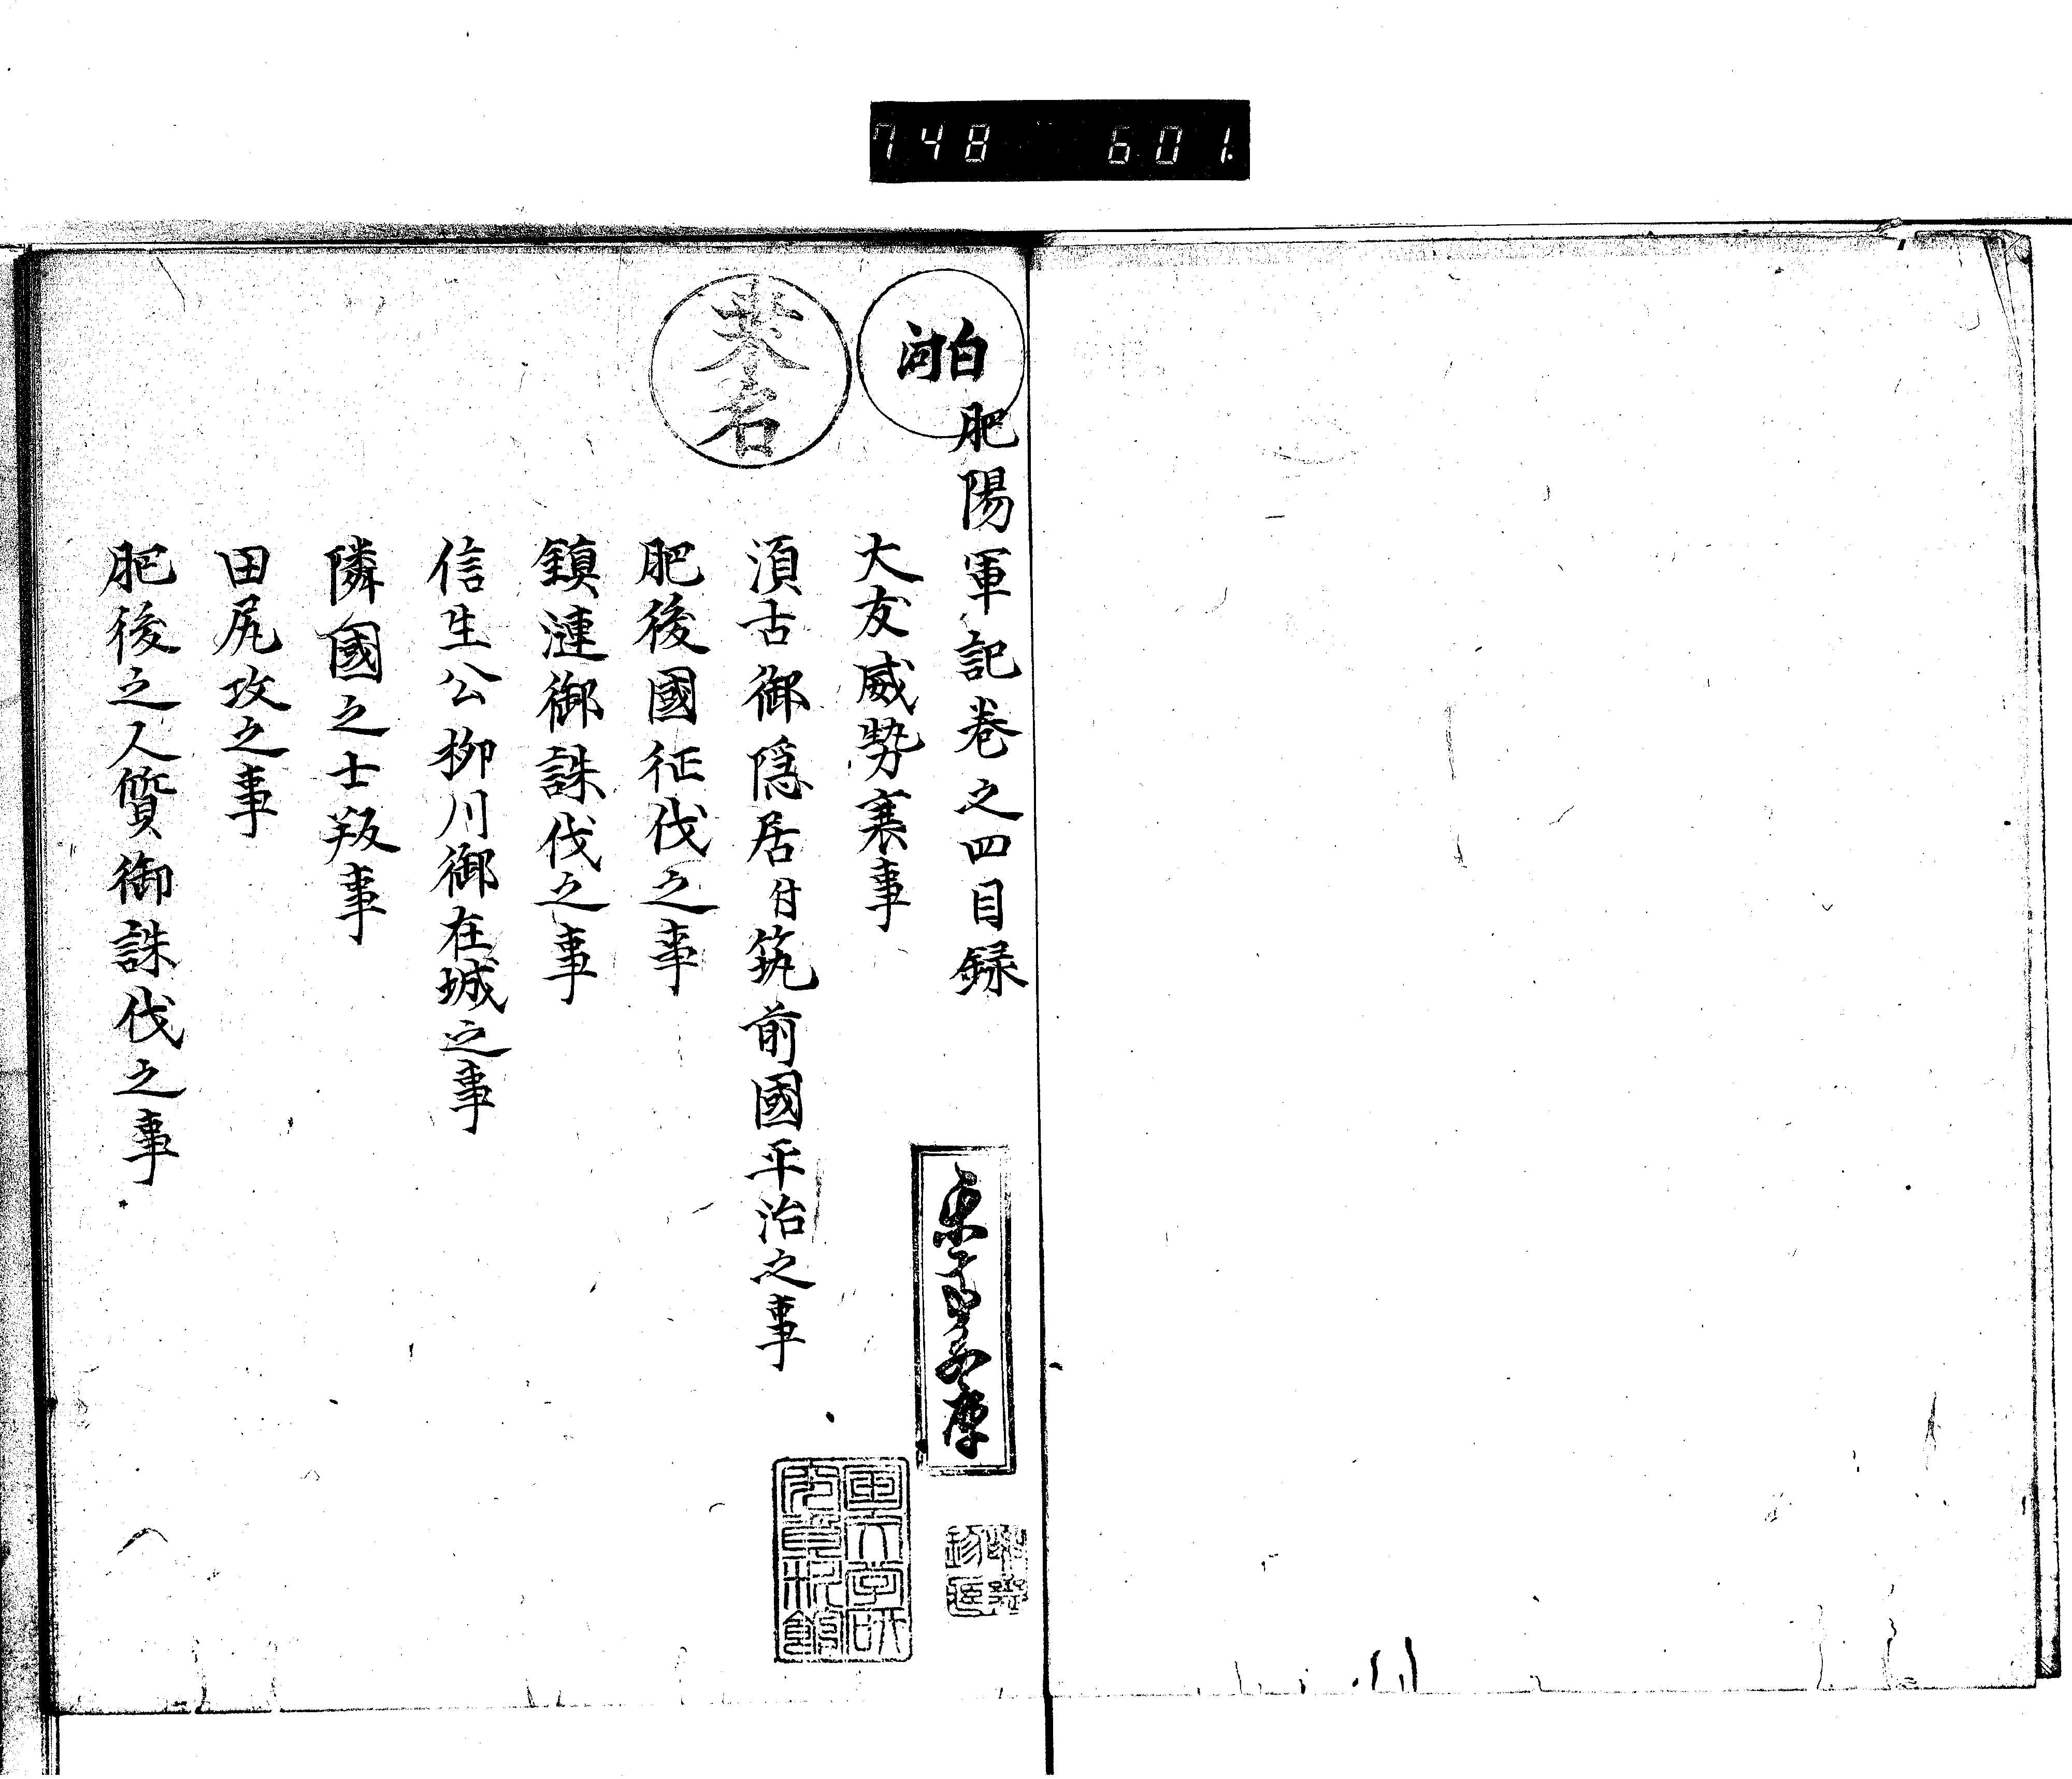 748 601
肥陽軍記巻之四目録
大友威勢衰事
須古御隠居付筑前國平治之事
肥後國征伐之事
鎮漣御誅伐之事
信生公柳川御在城之事
隣國之士叛事
田尻攻之事
肥後之人質御誅伐之事
白河
國文学研
究資料館